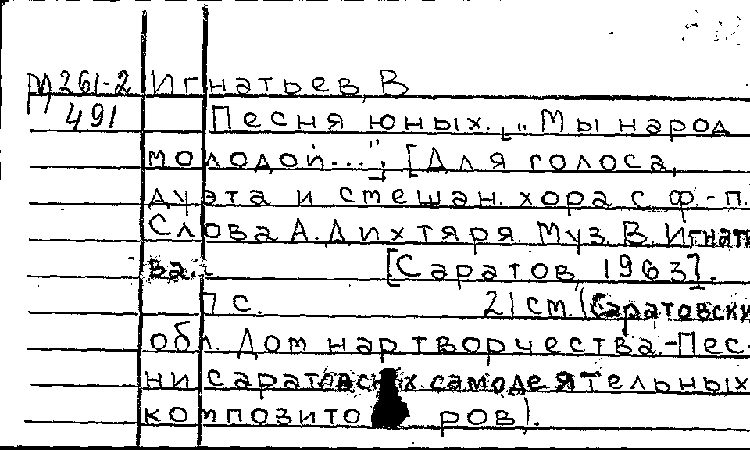 М261-2 Игнатьев, В
491 Песня юных. [„Мы народ
молодой..."]; [Для голоса,
дуэта и смешан. хора с ф.-п.
Слова А. Дихтяря Муз. В. Игнать
ва. [Саратов, 1963].
7 с. 21 см. (Саратовски
обл. Дом нар творчества.-Пес-
ни саратовских самодеятельных
композито ров).